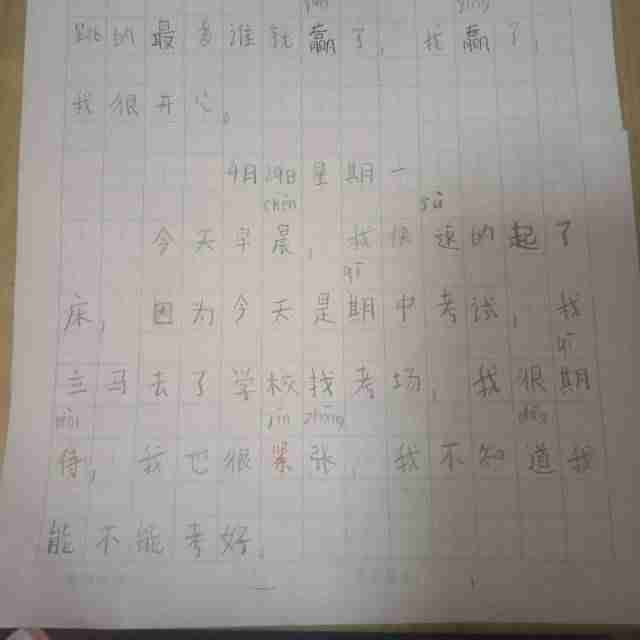 yíng yíng
跳的最多谁就赢了，我赢了，
我很开心。
4月29日星期一
chén sù
今天早晨，我快速的起了
qī
床，因为今天是期中考试，我
qī
立马去了学校找考场，我很期
dài jǐn zhāng dào
待，我也很紧张，我不知道我
能不能考好。